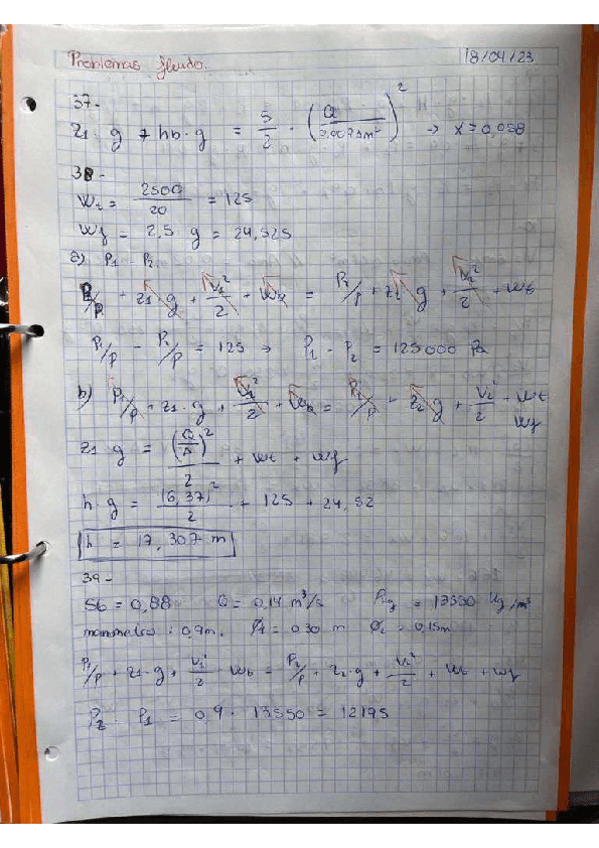 Problemas fluido. 18/04/23
37-
z1 · g + hb · g = 5/2 · (Q/0,009 m²)² → x = 0,058
38-
Wt = 2500/20 = 125
Wf = 2,5 g = 24,525
a) P1 - P2
P1/ρ + z1 · g + V1²/2 + Wb = P2/ρ + z2 g + V2²/2 + Wt
P1/ρ - P2/ρ = 125 → P1 - P2 = 125000 Pa
b) P1/ρ + z1 · g + V1²/2 + Wb = P2/ρ + z2 g + V2²/2 + Wt
Wf
z1 g = (Q/A)²/2 + Wt + Wf
h · g = (6,37)²/2 + 125 + 24,52
h = 17,307 m
39-
S6 = 0,88 Q = 0,14 m³/s = 13550 Kg/m³
manometro : 0,9m. Ø1 = 0,30 m Ø2 = 0,15m
P1/ρ + z1 · g + V1²/2 + Wb = P2/ρ + z2 · g + V2²/2 + Wt + Wf
P2 - P1 = 0,9 · 13550 = 12195